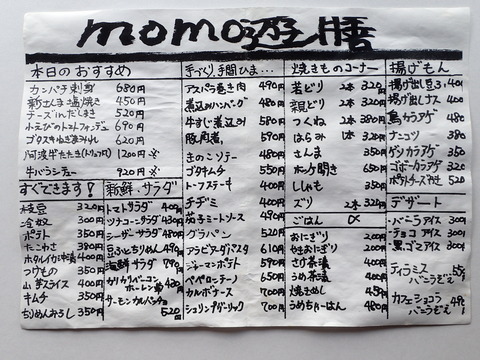 momo遊膳
本日のおすすめ
カンパチ刺身 680円
新さんま塩焼き 450円
チーズinだしまき 520円
小えびのトマトフォンデュ 690円
620円
1200円
牛バラシチュー 920円
すぐできます!
枝豆 320円
冷奴 300円
ポテト 350円
たこわさ 380円
ホタルイカ沖漬 400円
つけもの 350円
山芋スライス 400円
キムチ 350円
ちりめんおろし 350円
新鮮・サラダ
トマトサラダ 400円
ツナコーンサラダ 430円
シーザーサラダ 480円
豆ふとちりめん 490円
海鮮サラダ 790円
カリカリベーコン
ホーレン草 430円
サーモンカルパッチョ
520円
手づくり、手間ひま…
アスパラ巻き肉 490円
煮込みハンバーグ 480円
牛すじ煮込み 580円
豚角煮 590円
きのこソテー 480円
ゴタキムチ 550円
トーフステーキ 450円
チヂミ 450円
茄子ミートソース 490円
グラパン 520円
アラビアータパスタ 610円
ジャーマンポテト 590円
ペペロンチーノ 600円
カルボナース 700円
シュリンプガーリック 700円
焼きものコーナー
若どり 2本 320円
親どり 2本 320円
つくね 2本 380円
はらみ 2本 320円
さんま 350円
ホッケ開き 650円
ししゃも 350円
ズリ 2本 320円
ごはん
おにぎり 200円
やきおにぎり 300円
さけ茶漬 400円
うめ茶漬 400円
焼きめし 450円
うめちゃーはん 480円
揚げもん
揚げ出し豆ふ 401
揚げ出しナス 400円
鳥カラアゲ 480円
ナンコツ 380円
ゲソカラアゲ 350円
ゴボーカラアゲ 320円
ポテトチーズやき 520
デザート
・バニラアイス 300円
・チョコアイス 300円
・黒ゴマアイス 300円
ティラミス
バニラぞえ
カフェショコラ
バニラぞえ